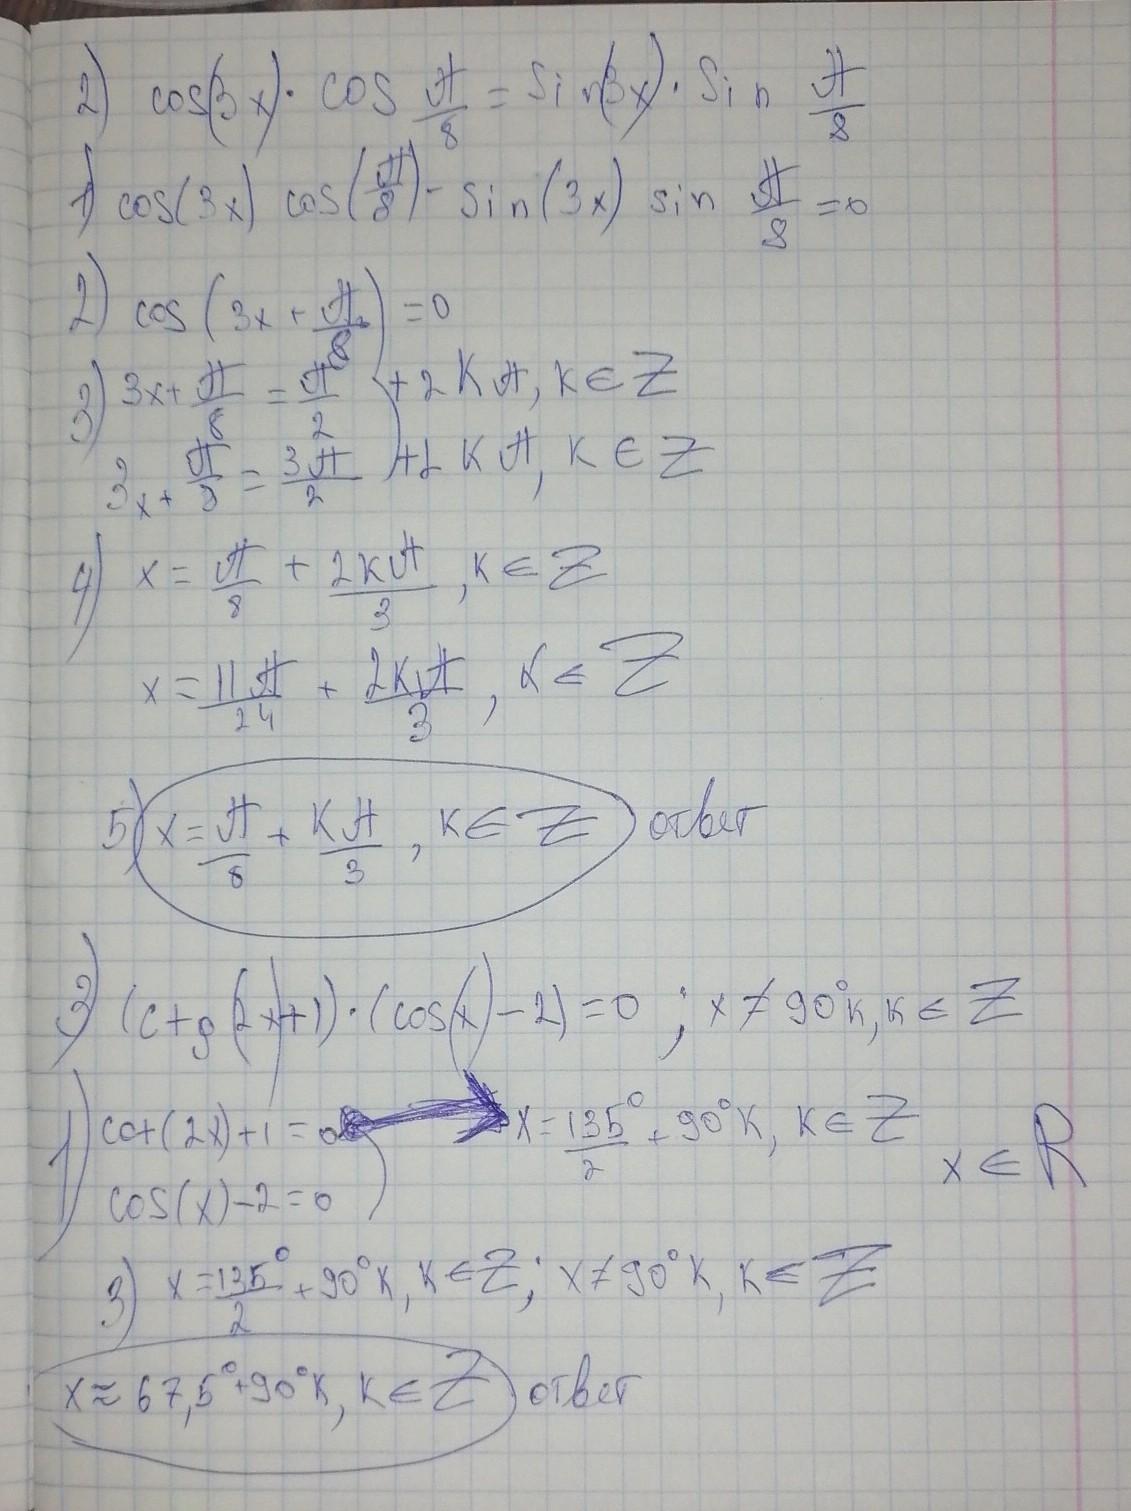 2) cos(3x)·cos π/8 = Sin(3x)·Sin π/8
1) cos(3x) cos(π/8) - sin(3x) sin π/8 = 0
2) cos (3x + π/8) = 0
3) 3x + π/8 = π/2 + 2Kπ, K ∈ Z
3x + π/8 = 3π/2 + 2Kπ, K ∈ Z
4) x = π/8 + 2Kπ/3, K ∈ Z
x = 11π/24 + 2Kπ/3, K ∈ Z
5) x = π/8 + Kπ/3, K ∈ Z ответ
3) (ctg(2x)+1)·(cos(x)-2)=0 ; x ≠ 90°K, K ∈ Z
1) cot(2x)+1=0 → x = 135°/2 + 90°K, K ∈ Z
cos(x)-2=0 x ∈ R
3) x = 135°/2 + 90°K, K ∈ Z; x ≠ 90°K, K ∈ Z
x ≈ 67,5°+90°K, K ∈ Z ответ